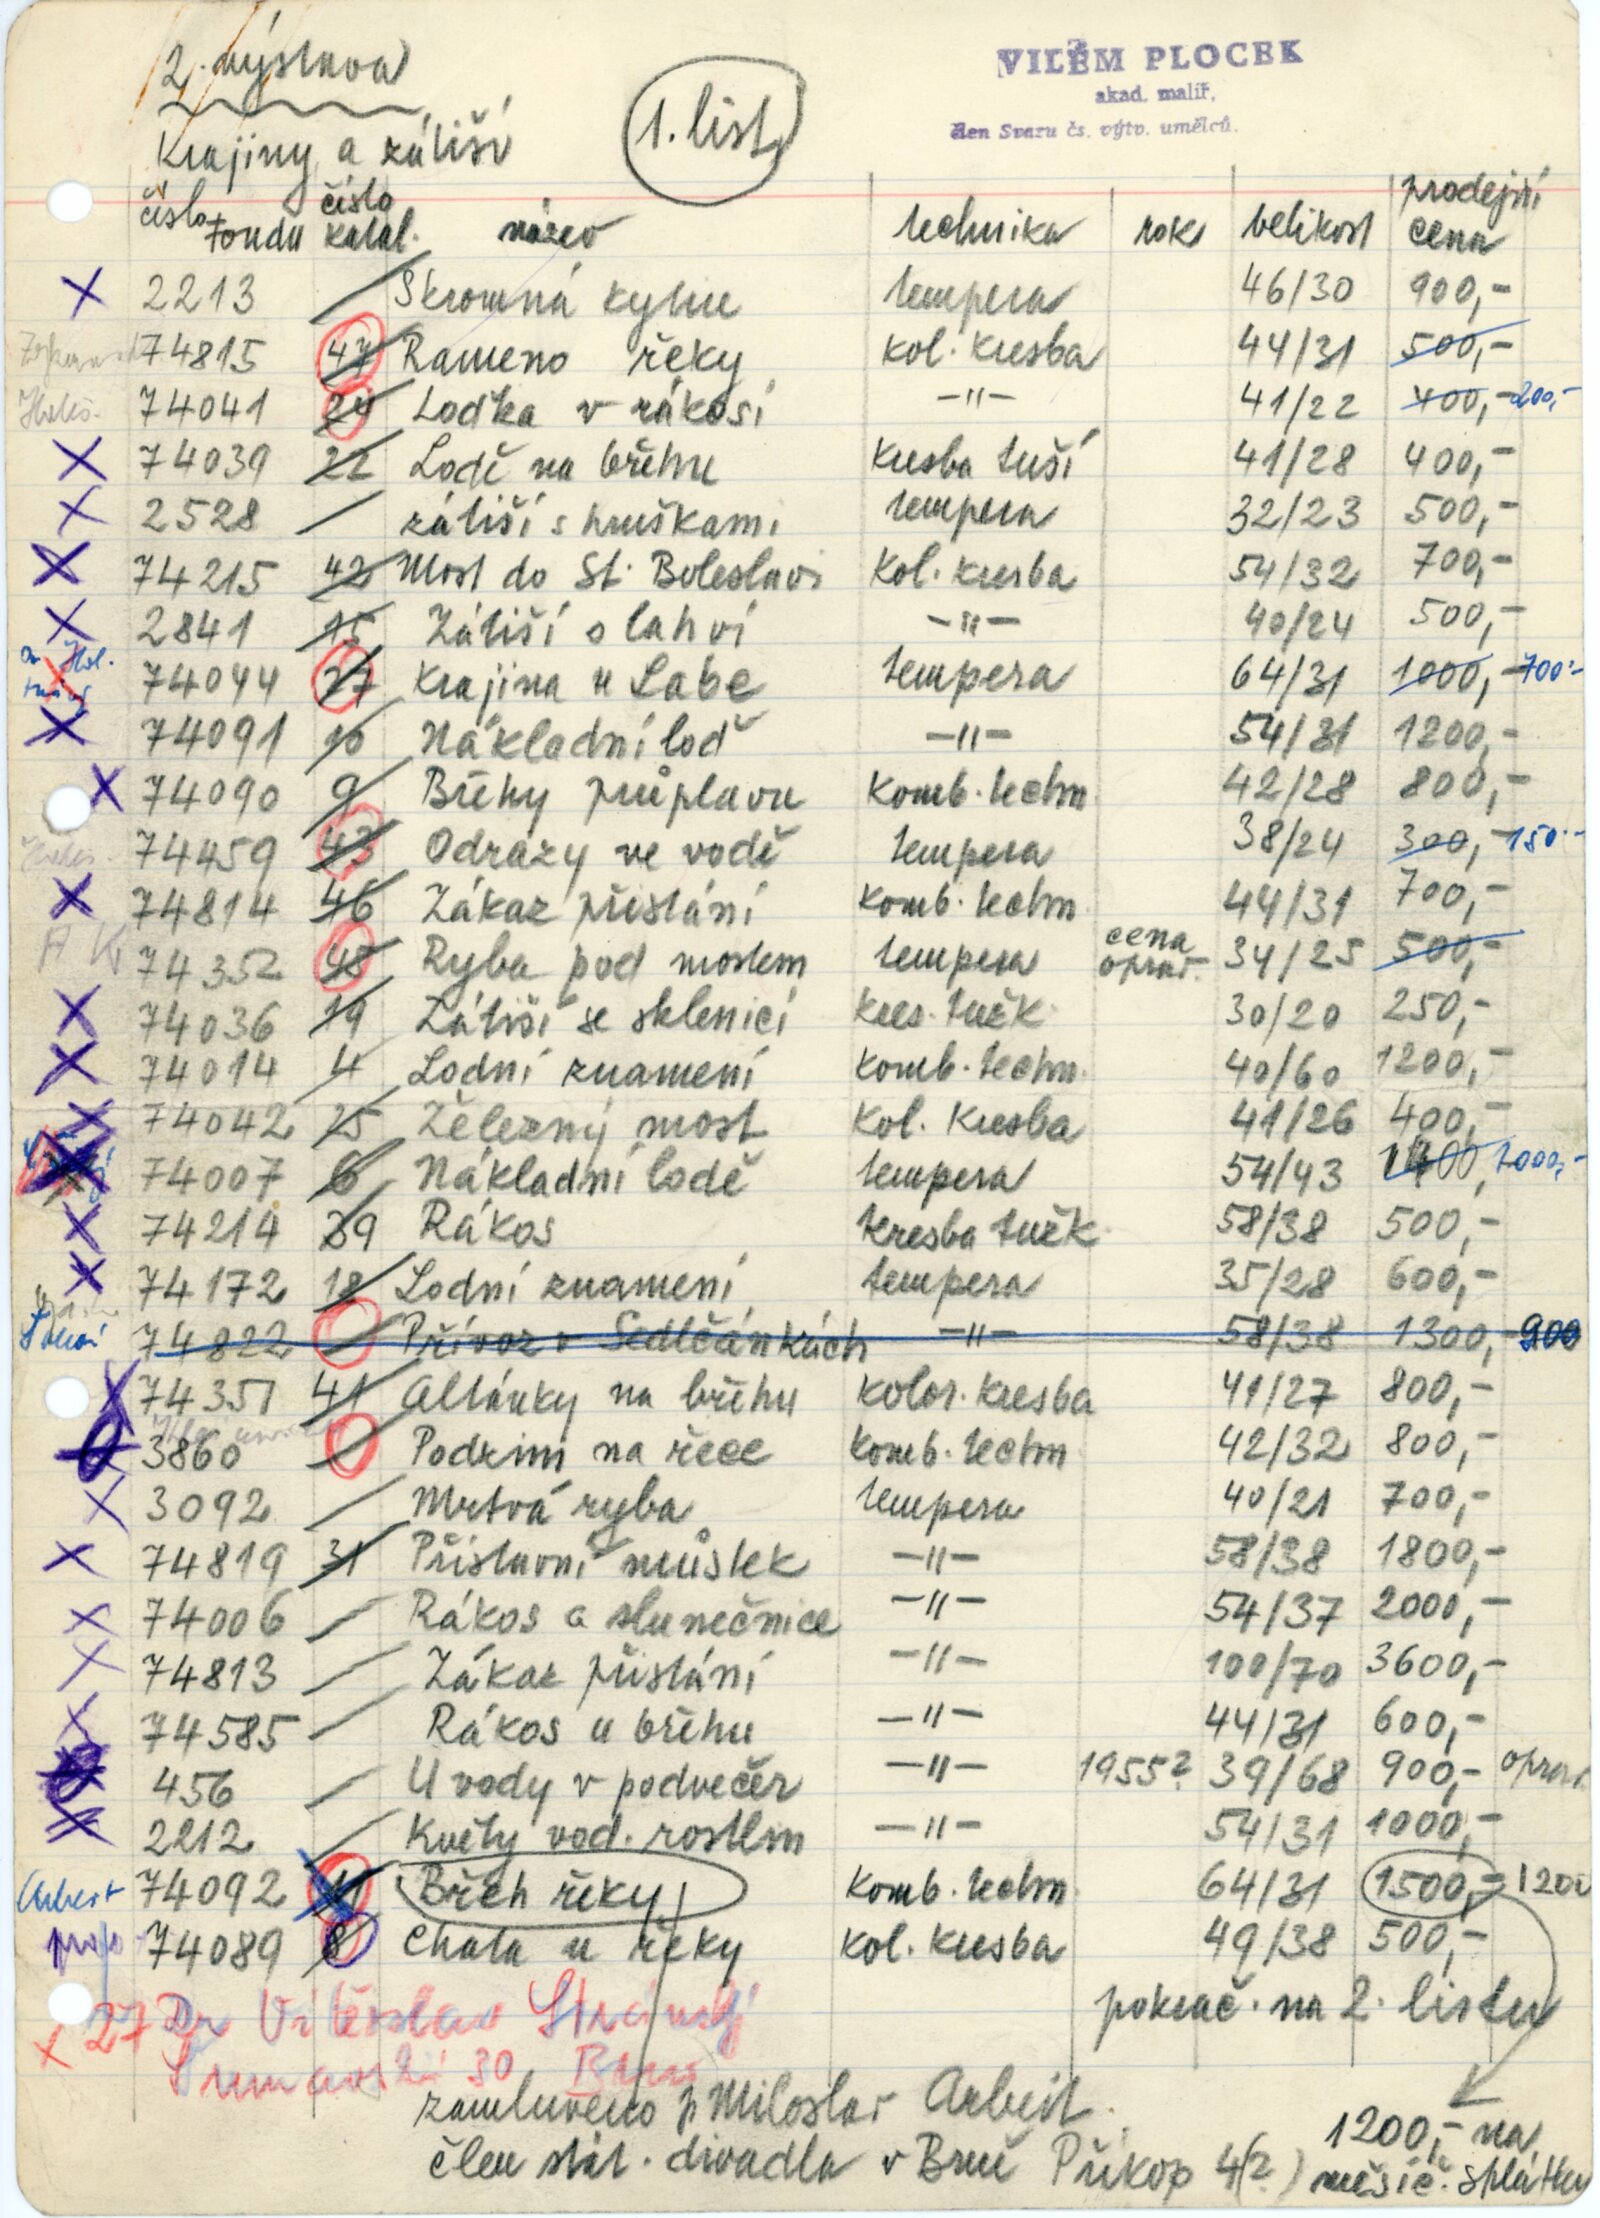 2. výstava
1. list
VILÉM PLOCEK
akad. malíř,
člen Svazu čs. výtv. umělců.
Krajiny a zátiší
číslo fondu číslo katal. název technika rok velikost prodejní cena
2213 Skromná kytice tempera 46/30 900,-
74815 47 Rameno řeky kol. kresba 44/31 500,-
74041 24 Loďka v rákosí -"- 41/22 400,- 200,-
74039 22 Lodě na břehu kresba tuší 41/28 400,-
2528 zátiší s hruškami tempera 32/23 500,-
74215 42 Most do St. Boleslavi kol. kresba 54/32 700,-
2841 15 Zátiší s lahví -"- 40/24 500,-
74044 27 Krajina u Labe tempera 64/31 1000,- 700,-
74091 10 Nákladní loď -"- 54/31 1200,-
74090 9 Břehy průplavu komb. techn. 42/28 800,-
74459 43 Odrazy ve vodě tempera 38/24 300,- 150,-
74814 46 Zákaz přistání komb. techn. 44/31 700,-
A K 74352 48 Ryba pod mostem tempera cena oprav. 34/25 500,-
74036 19 Zátiší se sklenicí kres. tužk. 30/20 250,-
74014 4 Lodní znamení komb. techn. 40/60 1200,-
74042 25 Železný most kol. kresba 41/26 400,-
74007 6 Nákladní lodě tempera 54/43 1400, 1000,-
74214 39 Rákos kresba tužk. 58/38 500,-
74172 18 Lodní znamení tempera 35/28 600,-
74822 Přívoz v Sedlčánkách -"- 58/38 1300,- 900
74351 41 Altánky na břehu kolor. kresba 41/27 800,-
3860 Podzim na řece komb. techn. 42/32 800,-
3092 Mrtvá ryba tempera 40/21 700,-
74819 31 Přístavní můstek -"- 58/38 1800,-
74006 Rákos a slunečnice -"- 54/37 2000,-
74813 Zákaz přistání -"- 100/70 3600,-
74585 Rákos u břehu -"- 44/31 600,-
456 U vody v podvečer -"- 1955? 39/68 900,- oprav.
2212 Květy vod. rostlin -"- 54/31 1000,-
Arbert 74092 11 Břeh řeky komb. techn. 64/31 1500,- 1200
74089 8 Chata u řeky kol. kresba 49/38 500,-
pokrač. na 2. listu
x 27 Dr Vítěslav Stránský
30 Brno
zamluveno p Miloslav Arbeit
člen stát. divadla v Brně Příkop 4(?)
1200,- na
měsíč. splátky